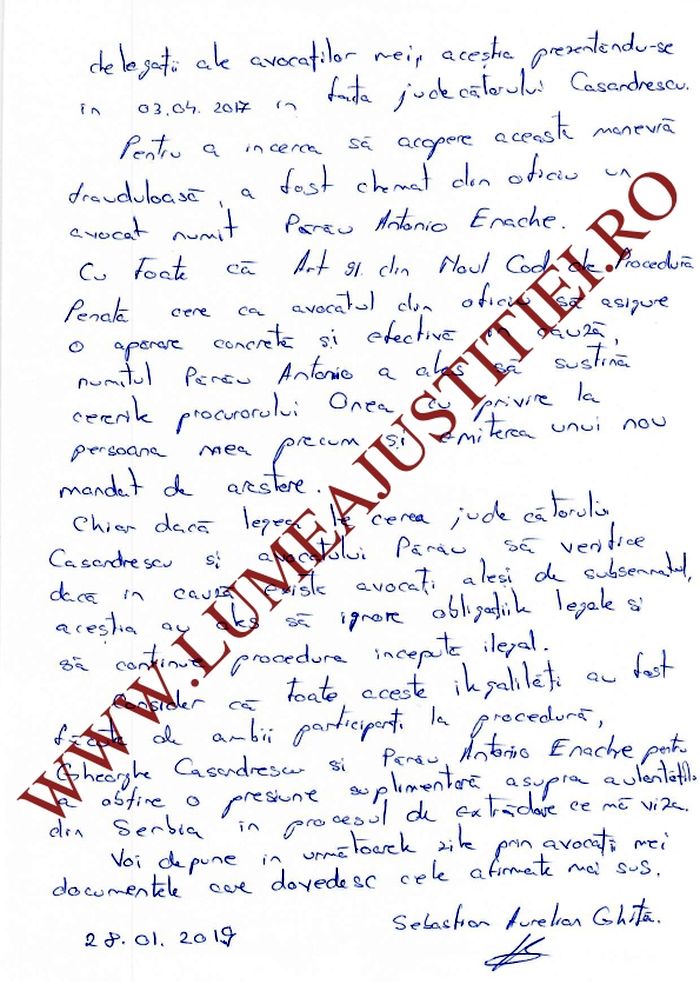 delegații ale avocaților mei, aceștia prezentându-se
in 03.04.2017 in fața judecătorului Casandrescu.
Pentru a incerca să acopere această manevră
frauduloasă, a fost chemat din oficiu un
avocat numit Părău Antonio Enache.
Cu toate că Art 91. din Noul Cod de Procedură
Penală cere ca avocatul din oficiu să asigure
o apărare concretă și efectivă in cauză,
numitul Părău Antonio a ales să susțină
cererile procurorului Onea cu privire la
persoana mea precum și emiterea unui nou
mandat de arestare.
Chiar dacă legea le cerea judecătorului
Casandrescu si avocatului Părău să verifice
dacă in cauză existe avocați aleși de subsemnatul,
aceștia au ales să ignore obligațiile legale si
să continue procedura incepută ilegal.
Consider că toate aceste ilegalități au fost
făcute de ambii participanți la procedură,
Gheorghe Casandrescu si Părău Antonio Enache pentru
a obține o presiune suplimentară asupra autorităților
din Serbia in procesul de extrădare ce mă viza.
Voi depune in următoarele zile prin avocați mei
documentele care dovedesc cele afirmate mai sus.
28.01.2019
Sebastian Aurelian Ghiță.
WWW.LUMEAJUSTITIEI.RO